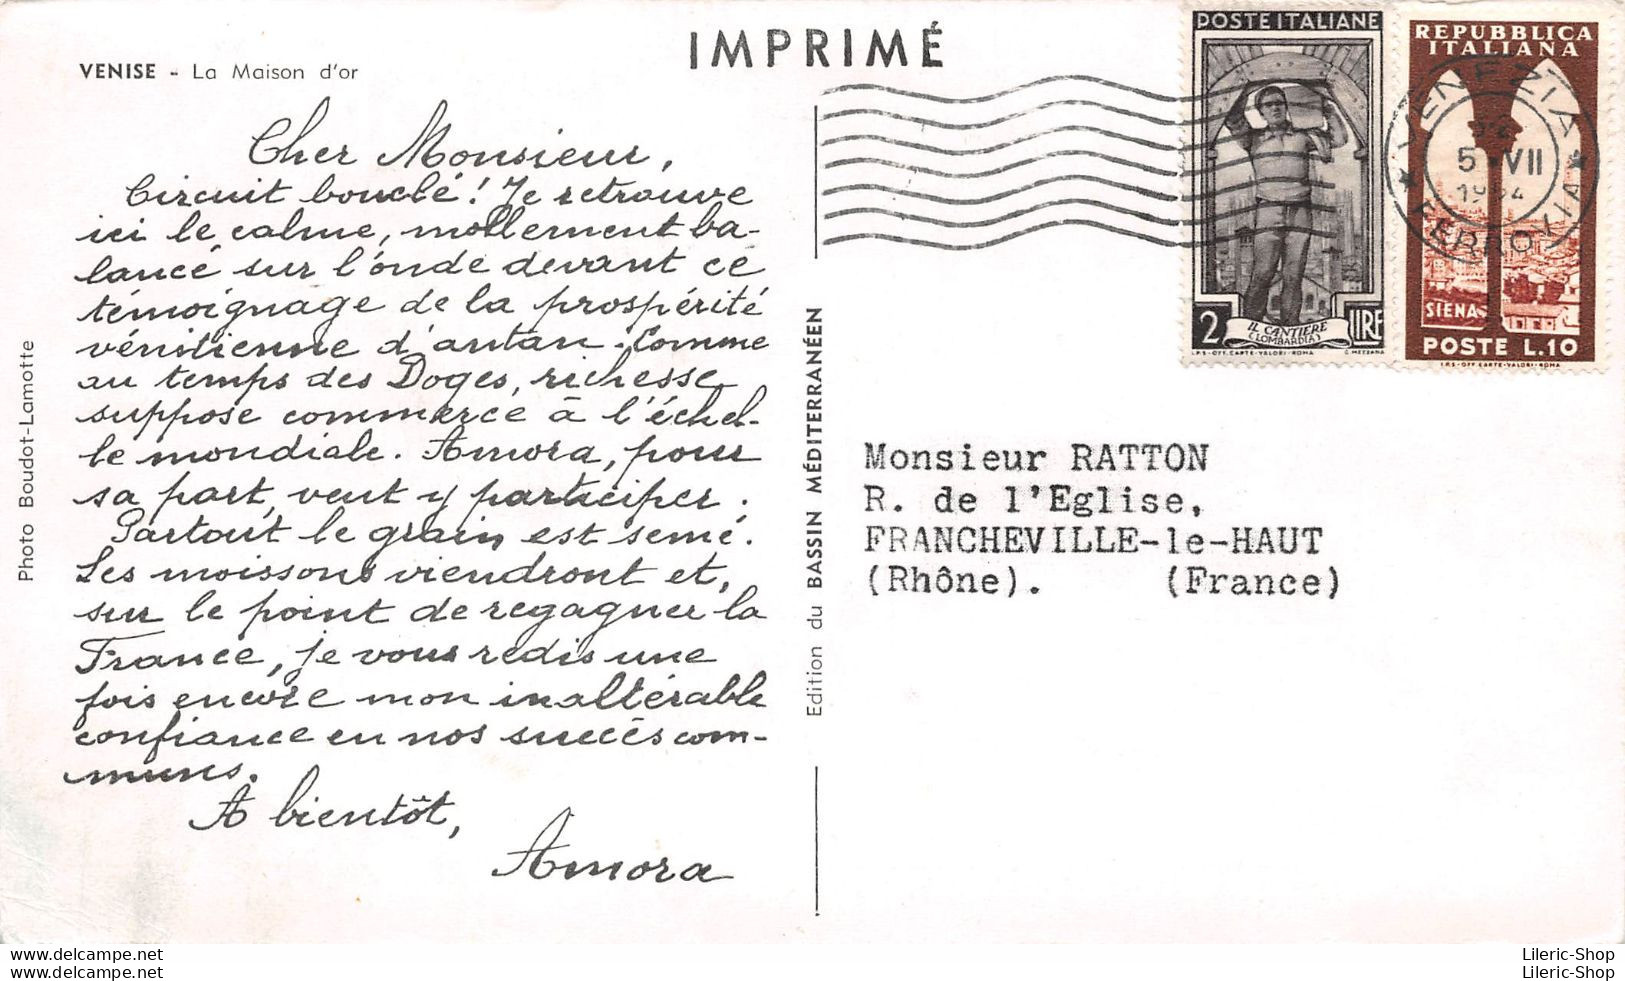 IMPRIMÉ
VENISE - La Maison d'or
Cher Monsieur,
Circuit bouclé! Je retrouve
ici le calme, mollement ba-
lancé sur l'onde devant ce
témoignage de la prospérité
vénitienne d'antan. Comme
au temps des Doges, richesse
suppose commerce à l'échel-
le mondiale. Amora, pour
sa part, veut y participer.
Partout le grain est semé.
Les moissons viendront et,
sur le point de regagner la
France, je vous redis une
fois encore mon inaltérable
confiance en nos succès com-
muns.
A bientôt,
Amora
Photo Boudot-Lamotte
Edition du BASSIN MÉDITERRANÉEN
POSTE ITALIANE
2 LIRE
IL CANTIERE
(LOMBARDIA)
I.P.S.-OFF. CARTE-VALORI-ROMA C. MEZZANA
REPUBBLICA
ITALIANA
SIENA
POSTE L.10
I.P.S-OFF CARTE-VALORI-ROMA
VENEZIA
5 VII
1954
FERROVIA
Monsieur RATTON
R. de l'Eglise,
FRANCHEVILLE-le-HAUT
(Rhône). (France)
Lileric-Shop
Lileric-Shop
Lileric-Shop
Lileric-Shop